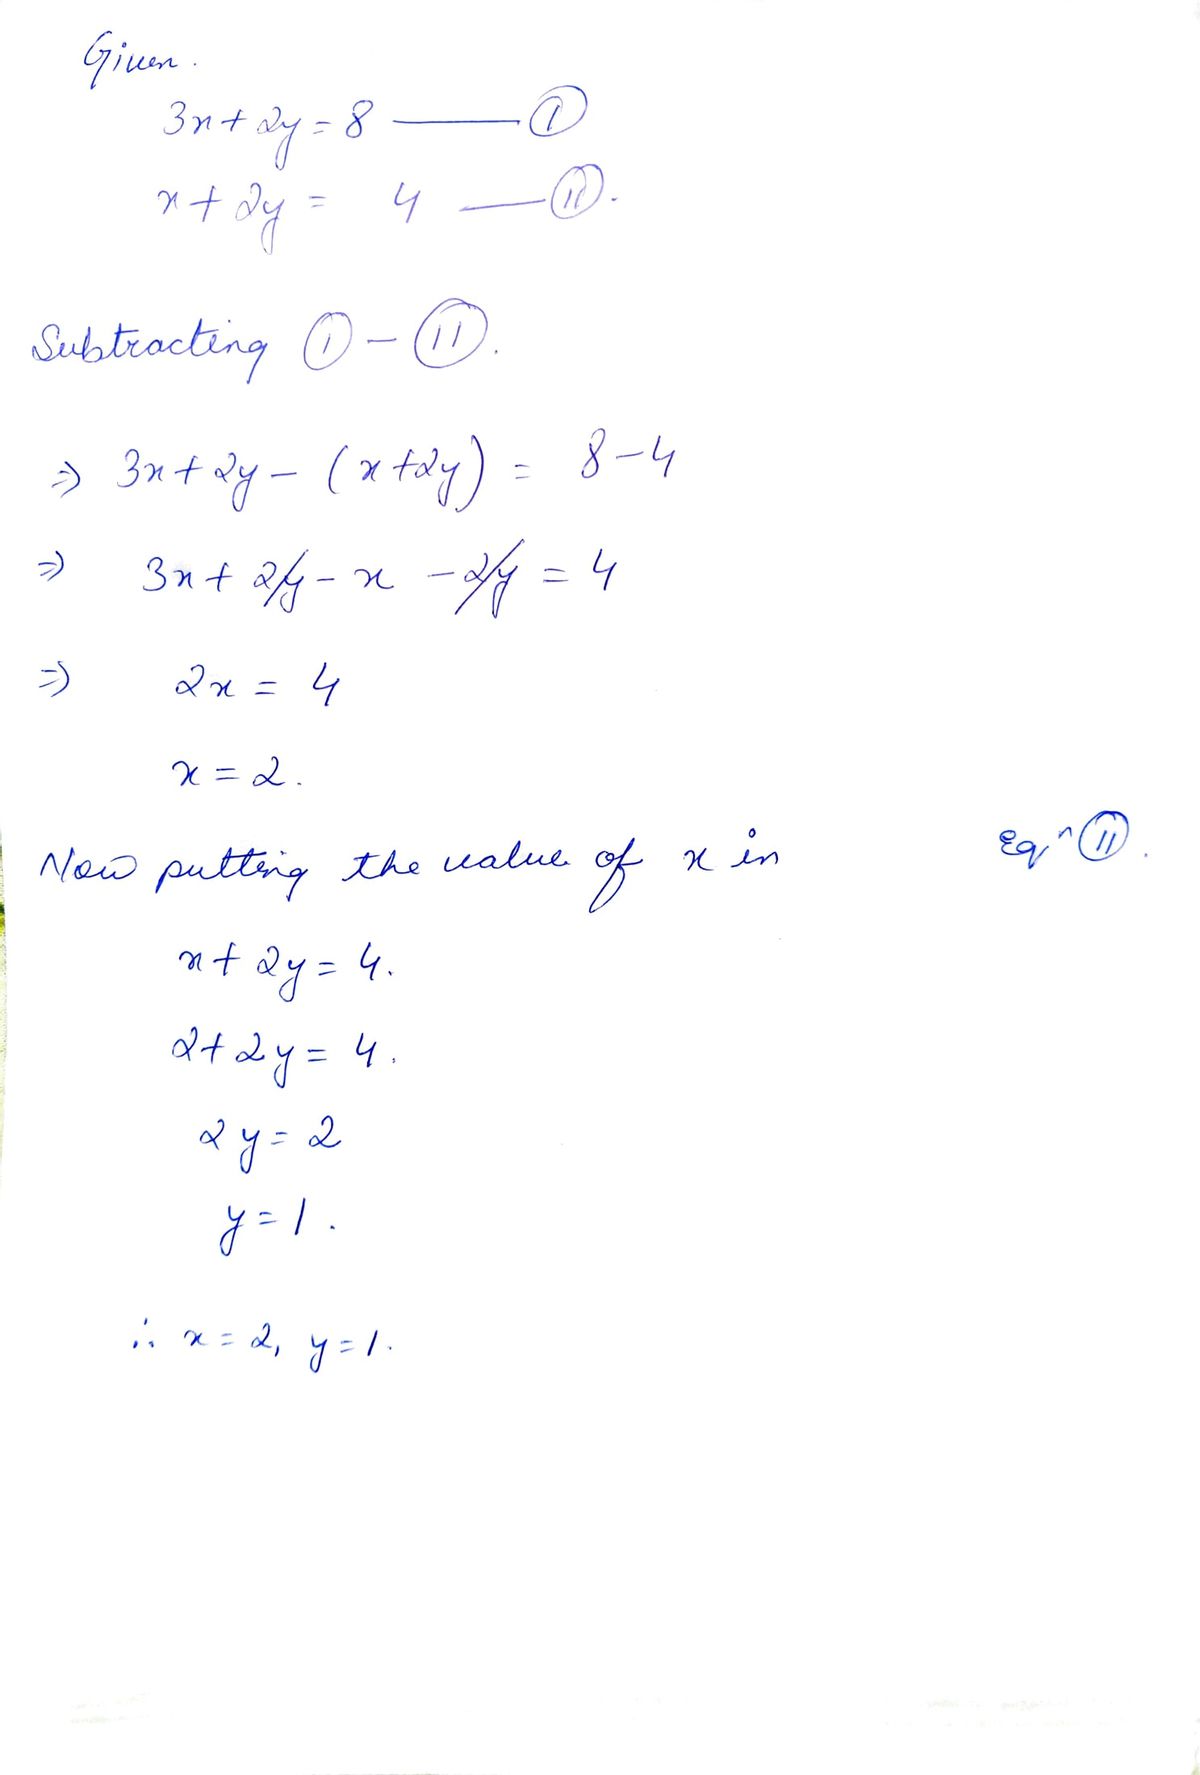 Given.
3x + 2y = 8 —— (I)
x + 2y = 4 —— (II).
Subtracting (I) - (II).
⇒ 3x + 2y - (x + 2y) = 8 - 4
⇒ 3x + 2y - x - 2y = 4
⇒ 2x = 4
x = 2.
Now putting the value of x in Eqⁿ (II).
x + 2y = 4.
2 + 2y = 4.
2y = 2
y = 1.
∴ x = 2, y = 1.